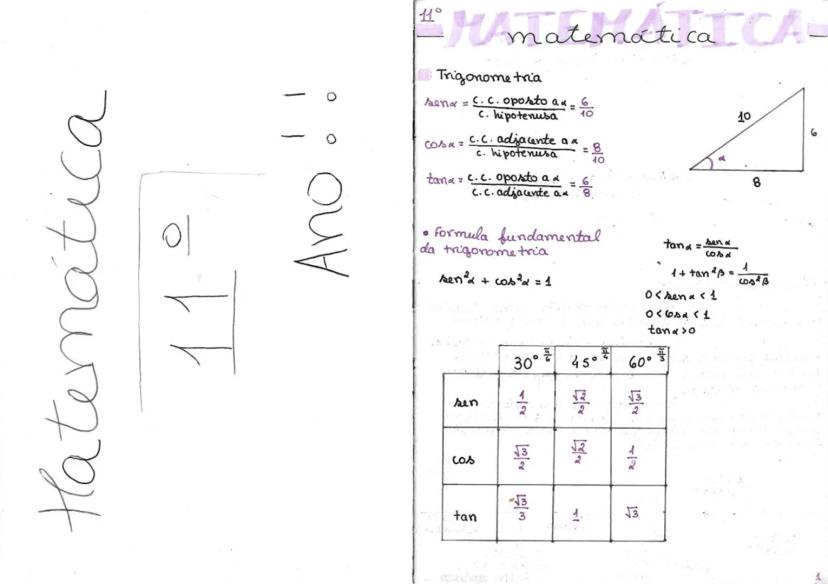 Matemática
11º
Ano!!
11º
MATEMÁTICA
matemática
Trigonometria
senα = c.c. oposto a α / c. hipotenusa = 6/10
cosα = c.c. adjacente a α / c. hipotenusa = 8/10
tanα = c.c. oposto a α / c.c. adjacente a α = 6/8
10
6
α
8
• Formula fundamental
da trigonometria
sen²α + cos²α = 1
tanα = senα / cosα
1 + tan²β = 1 / cos²β
0 < senα < 1
0 < cosα < 1
tanα > 0
30° π/6 45° π/4 60° π/3
sen 1/2 √2/2 √3/2
cos √3/2 √2/2 1/2
tan √3/3 1 √3
1